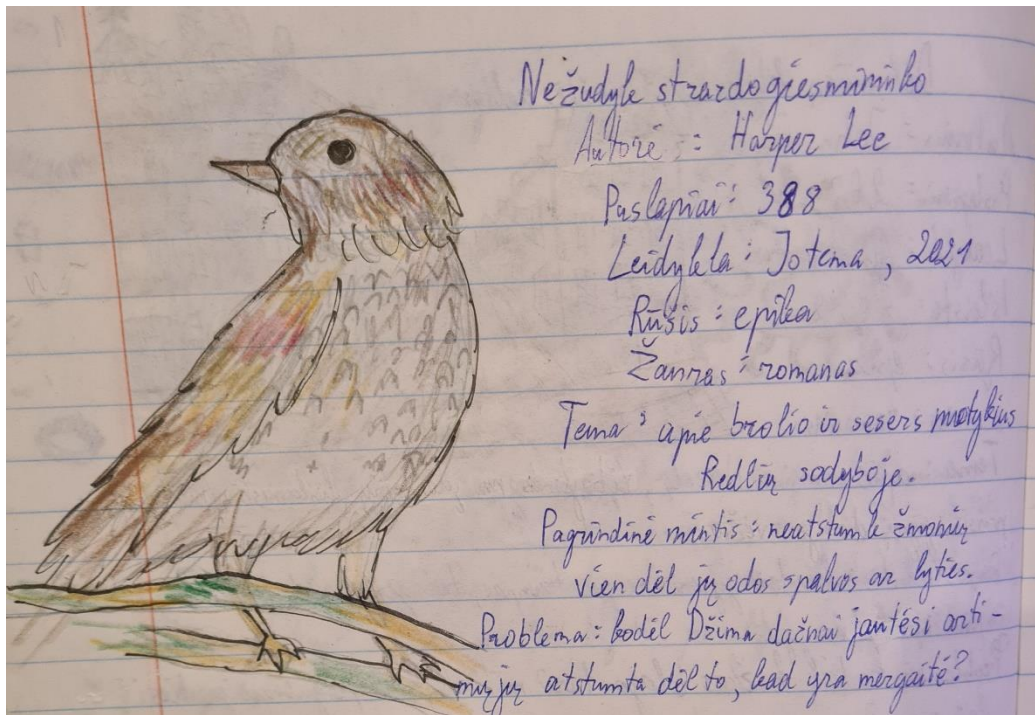 Nežudyk strazdo giesmininko
Autorė : Harper Lee
Puslapiai : 388
Leidykla : Jotema , 2021
Rūšis : epika
Žanras : romanas
Tema : apie brolio ir sesers nuotykius
Redlių sodyboje.
Pagrindinė mintis : neatstumk žmonių
vien dėl jų odos spalvos ar lyties.
Problema : kodėl Džima dažnai jautėsi arti-
mųjų atstumta dėl to, kad yra mergaitė?